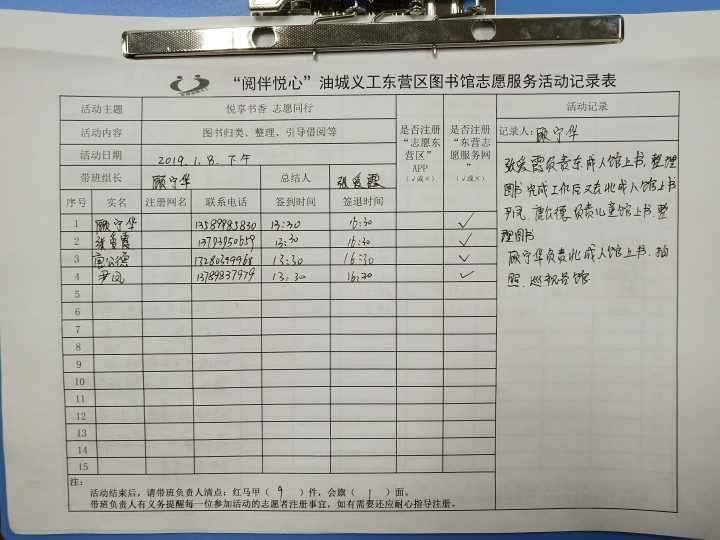 “阅伴悦心”油城义工东营区图书馆志愿服务活动记录表
活动主题 悦享书香 志愿同行 是否注册“志愿东营区”APP（√或×） 是否注册“东营志愿服务网”（√或×） 活动记录
活动内容 图书归类、整理、引导借阅等 记录人：顾守华
活动日期 2019.1.8.下午
带班组长 顾守华 总结人 张爱霞
序号 实名 注册网名 联系电话 签到时间 签退时间
1 顾守华 13589985830 13:30 16:30 √
2 张爱霞 13793950659 13:30 16:30 √
3 唐公德 13280399968 13:30 16:30 √
4 尹凤 13789837979 13:30 16:30 √
5
6
7
8
9
10
11
12
13
14
15
张爱霞负责东成人馆上书.整理
图书.完成工作后又在北成人馆上书
尹凤.唐公德.负责儿童馆上书.整
理图书
顾守华负责北成人馆上书.拍
照.巡视各馆.
注：
活动结束后，请带班负责人清点：红马甲（ 9 ）件，会旗（ 1 ）面。
带班负责人有义务提醒每一位参加活动的志愿者注册事宜，如有需要还应耐心指导注册。